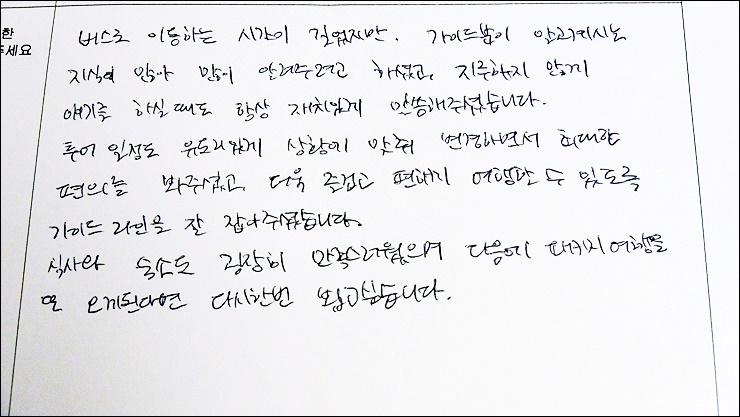 한
주세요
버스로 이동하는 시간이 길었지만, 가이드분이 알고계시는
지식이 많아 많이 알려주려고 하셨고, 지루하지 않게
얘기를 하실때도 항상 재치있게 말씀해주셨습니다.
투어 일정도 유도리있게 상황에 맞춰 변경하면서 최대한
편의를 봐주셨고, 더욱 즐겁고 편하게 여행할 수 있도록
가이드 라인을 잘 잡아주셨습니다.
식사와 숙소도 굉장히 만족스러웠으며 다음에 패키지여행을
또 오게된다면 다시한번 뵙고싶습니다.